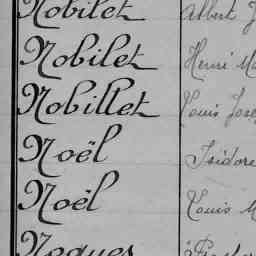 Nobilet Albert J
Nobilet Henri Ma
Nobillet Louis Jose
Noël Isidore
Noël Louis M
Nogues